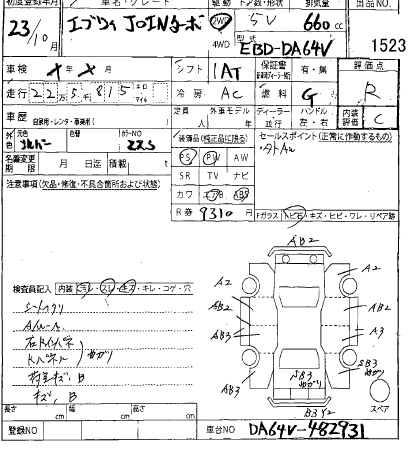 初度登録年月 車名・グレード 駆動 ドア数・形状 排気量 出品NO.
23/10月 エブリィ JOINターボ 2WD 4WD 5V 660cc
型式 EBD-DA64V 1523
車検 メ年メ月 シフト 1AT 保証書 有・無 評価点
走行 22万5千815 キロ マイル 冷房 AC 燃料 G R
車歴 自家用・レンタ・事業用( ) 定員 人 外車モデル 年 ディーラー 並行 ハンドル 左・右 内装評価 C
外色 元色 シルバー カラーNO Z2S 装備品(純正品に限る) セールスポイント(正常に作動するもの)
PS PW AW ・タトAW
名義変更期限 月 日迄 積載( )t SR TV ナビ
注意事項(欠品・修復・不具合箇所および状態) カワ エアB ABS
R券 9310円 Fガラス トビ石・キズ・ヒビ・ワレ・リペア跡
AB2
A2 A2
検査員記入 内装 汚レ・スレ・キズ・キレ・コゲ・穴
AB2 AB2
AB3 A3
AB3 SB3
SB3
B3Y2
キズ、B
スペア
長さ cm 幅 cm 高さ cm
登録NO 車台NO DA64V-482931